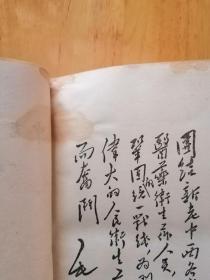 團結新老中西各
醫藥衛生工作人員
鞏固的統一戰線為
偉大的人民衛生工
而奮鬥
毛